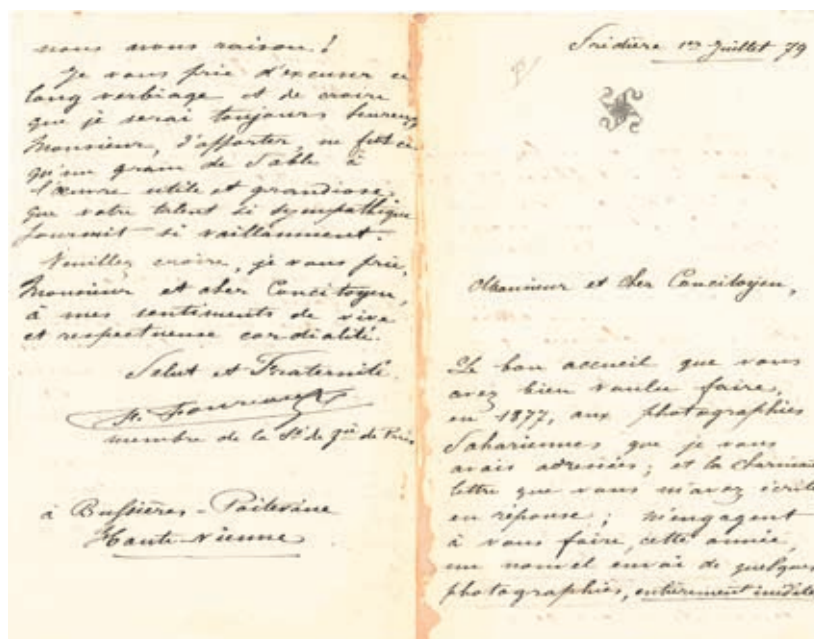 nous avons raison !
Je vous prie d'excuser ce
long verbiage et de croire
que je serai toujours heureux,
Monsieur, d'apporter, ne fut-ce
qu'un grain de sable à
l'œuvre utile et grandiose
que votre talent si sympathique
fournit si vaillamment.
Veuillez croire, je vous prie,
Monsieur et cher Concitoyen,
à mes sentiments de vive
et respectueuse cordialité.
Salut et Fraternité
Foureau
membre de la Sté de Gie de Paris
à Bussières-Poitevine
Haute-Vienne
1er Juillet 79
Monsieur et Cher Concitoyen,
Le bon accueil que vous
avez bien voulu faire,
en 1877, aux photographies
Sahariennes que je vous
avais adressées ; et la charmante
lettre que vous m'avez écrite
en réponse ; m'engagent
à vous faire, cette année,
un nouvel envoi de quelques
photographies, entièrement inédites